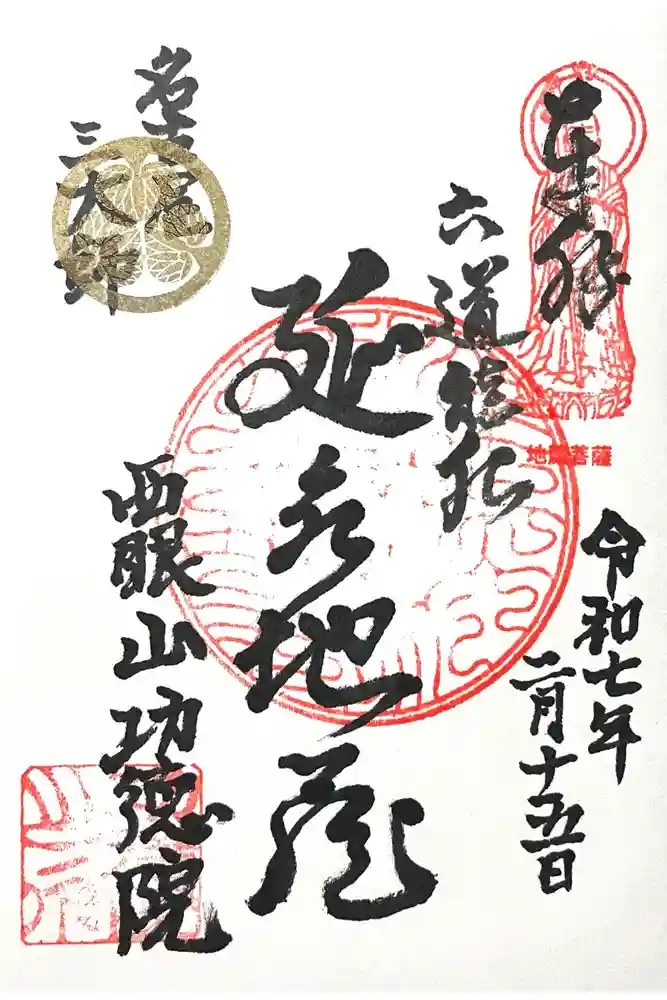 奉拝
地蔵菩薩
令和七年
二月十五日
六道能化
延命地蔵
名古屋
三大師
西眼山功徳院